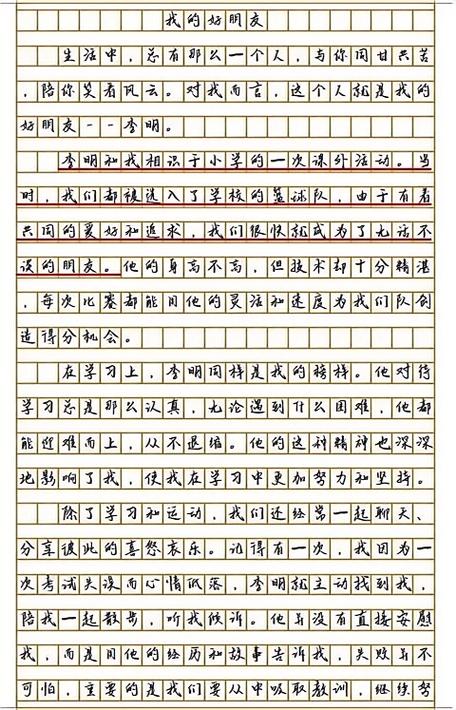 我的好朋友
生活中，总有那么一个人，与你同甘共苦
，陪你笑看风云。对我而言，这个人就是我的
好朋友--李明。
李明和我相识于小学的一次课外活动。当
时，我们都被选入了学校的篮球队，由于有着
共同的爱好和追求，我们很快就成为了无话不
谈的朋友。他的身高不高，但技术却十分精湛
，每次比赛都能用他的灵活和速度为我们队创
造得分机会。
在学习上，李明同样是我的榜样。他对待
学习总是那么认真，无论遇到什么困难，他都
能迎难而上，从不退缩。他的这种精神也深深
地影响了我，使我在学习中更加努力和坚持。
除了学习和运动，我们还经常一起聊天、
分享彼此的喜怒哀乐。记得有一次，我因为一
次考试失误而心情低落，李明就主动找到我，
陪我一起散步，听我倾诉。他并没有直接安慰
我，而是用他的经历和故事告诉我，失败并不
可怕，重要的是我们要从中吸取教训，继续努